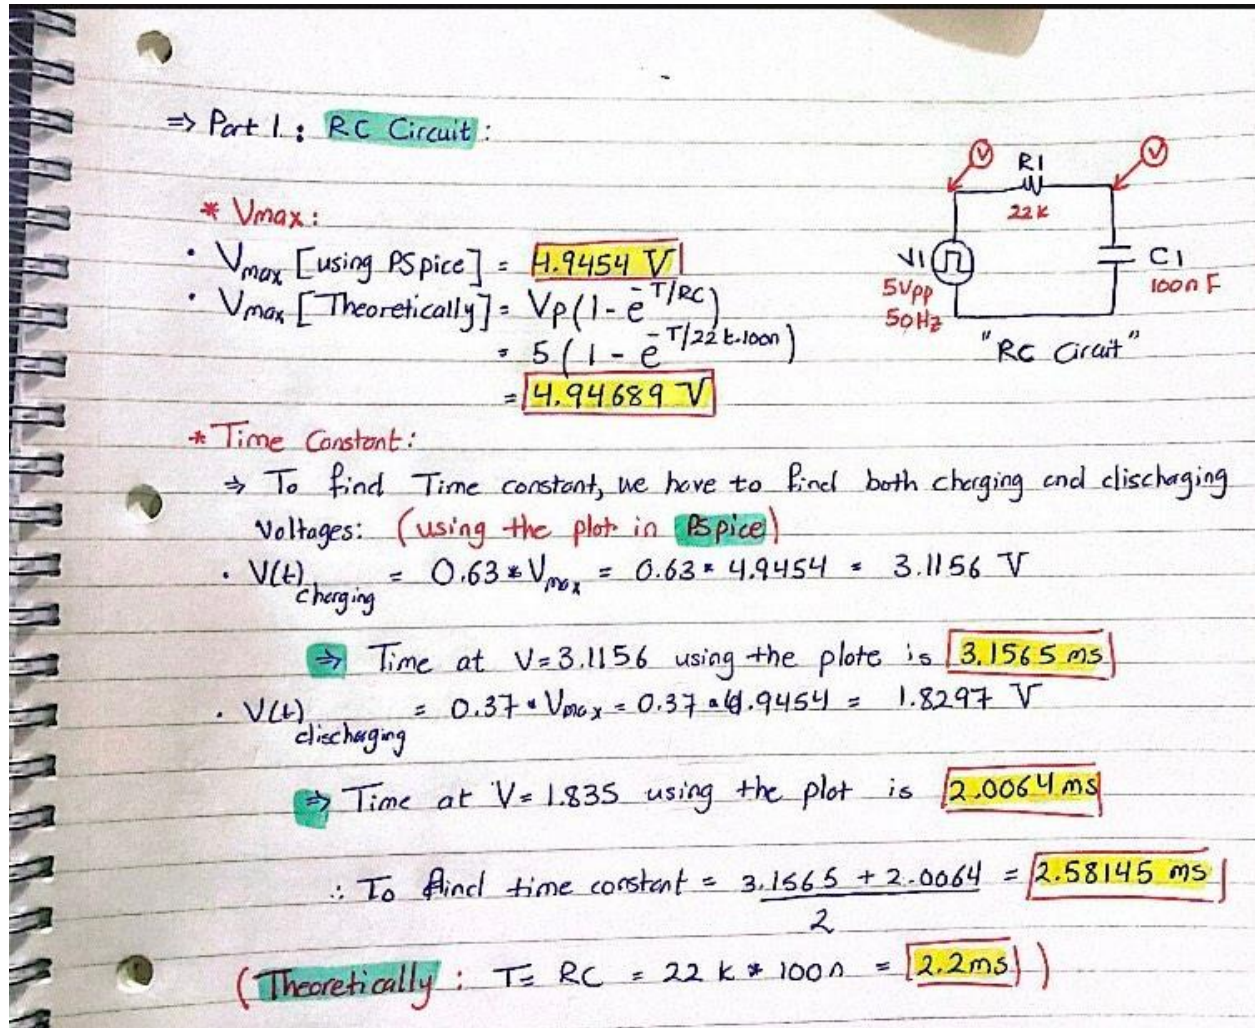 ⇒ Part 1: RC Circuit:
* Vmax:
• Vmax [using PSpice] = 4.9454 V
• Vmax [Theoretically] = Vp(1-e^-T/RC)
= 5(1-e^-T/22k.100n)
= 4.94689 V
V
R1
V
22k
V1
5Vpp
50Hz
C1
100nF
"RC Circuit"
* Time Constant:
⇒ To find Time constant, we have to find both charging and discharging
Voltages: (using the plot in PSpice)
• V(t) charging = 0.63 * Vmax = 0.63 * 4.9454 = 3.1156 V
⇒ Time at V=3.1156 using the plote is 3.1565 ms
• V(t) discharging = 0.37 * Vmax = 0.37 * 4.9454 = 1.8297 V
⇒ Time at V=1.835 using the plot is 2.0064 ms
∴ To find time constant = 3.1565 + 2.0064 / 2 = 2.58145 ms
(Theoretically: T= RC = 22 k * 100n = 2.2ms)